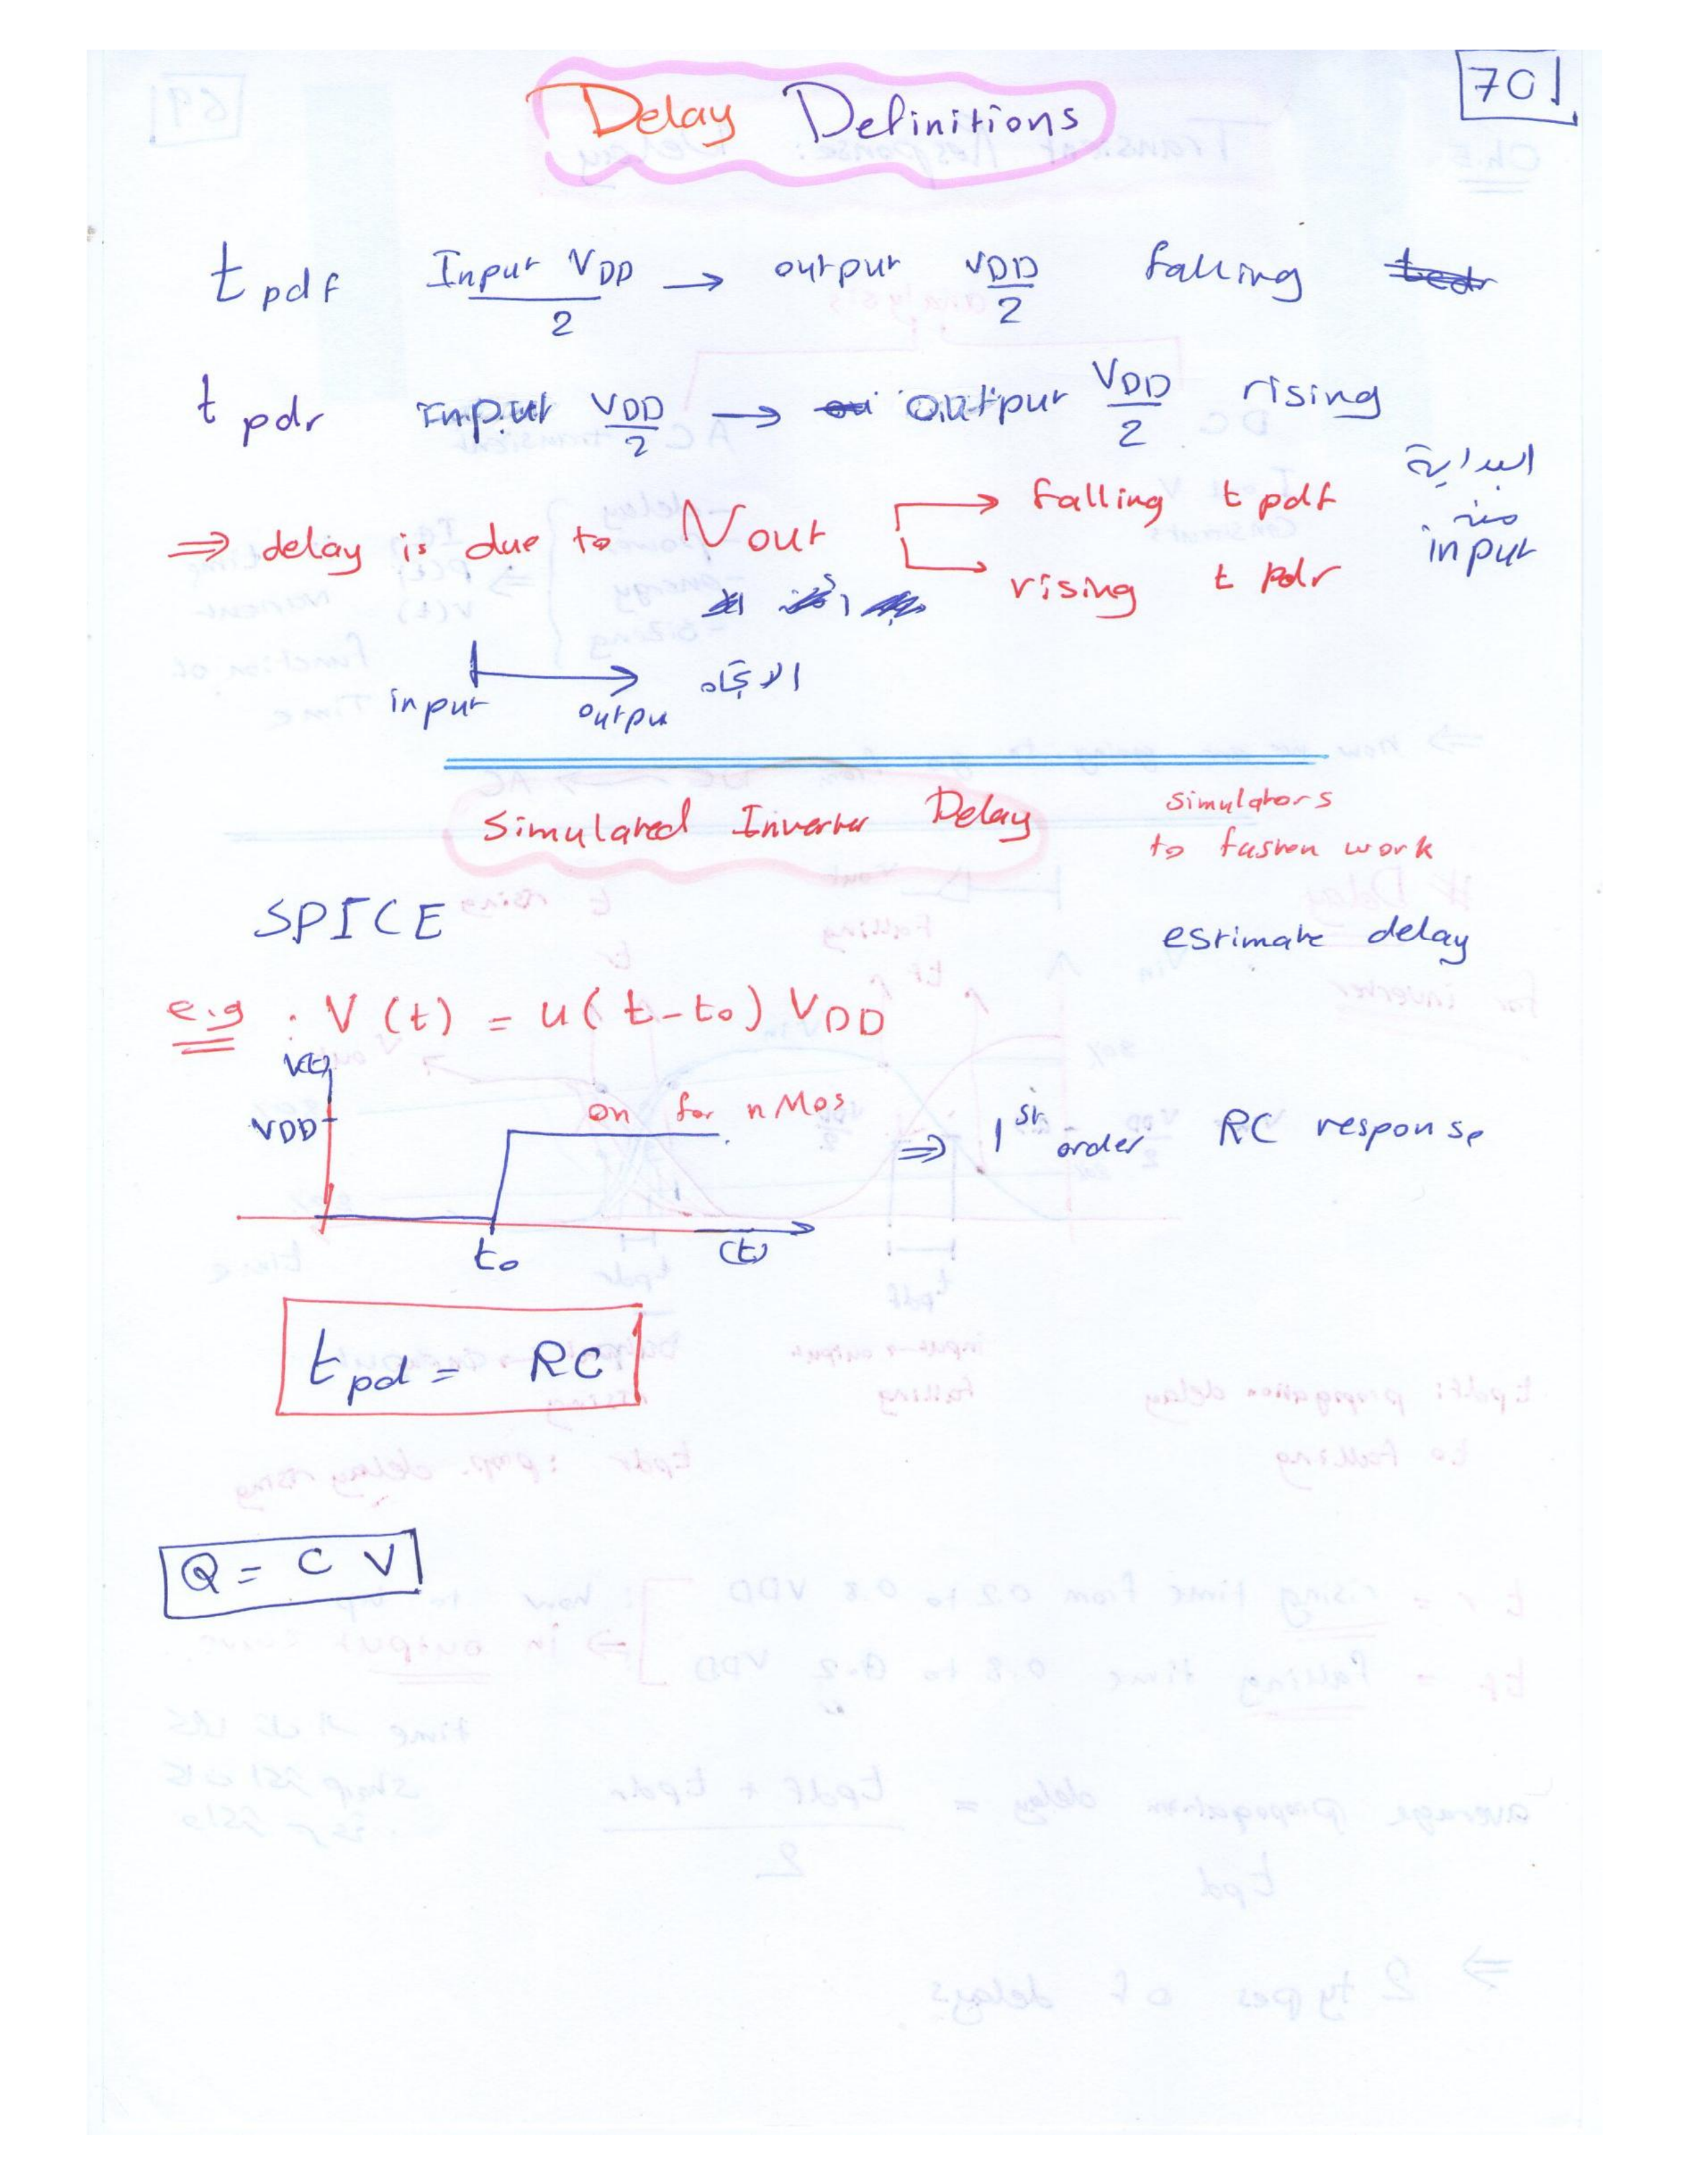 70
Delay Definitions
t pdf Input VDD/2 → output VDD/2 falling
t pdr input VDD/2 → output VDD/2 rising
⇒ delay is due to Vout → falling t pdf
→ rising t pdr
البداية
من
input
input → output الاتجاه
Simulated Inverter Delay
simulators
to fasten work
SPICE
estimate delay
e.g : V(t) = u(t-t₀) VDD
V(t)
VDD
on for nMos
⇒ 1st order RC response
t₀
(t)
tpd = RC
Q = C V